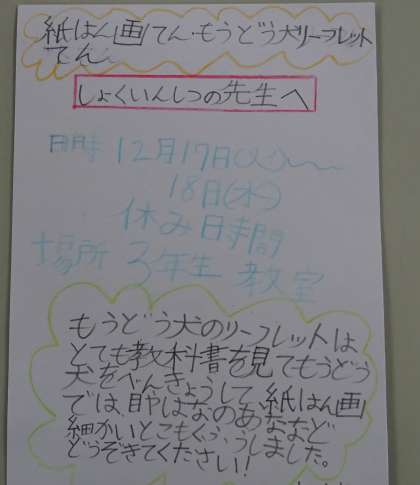 紙はん画てん・もうどう犬リーフレット
てん
しょくいんしつの先生へ
日時 12月17日(火)〜
18日(水)
休み時間
場所 3年生 教室
もうどう犬のリーフレットは
とても教科書を見てもうどう
犬をべんきょうして、紙はん画
では、目やはなのあななど
細かいとこもくふうしました。
どうぞきてください!